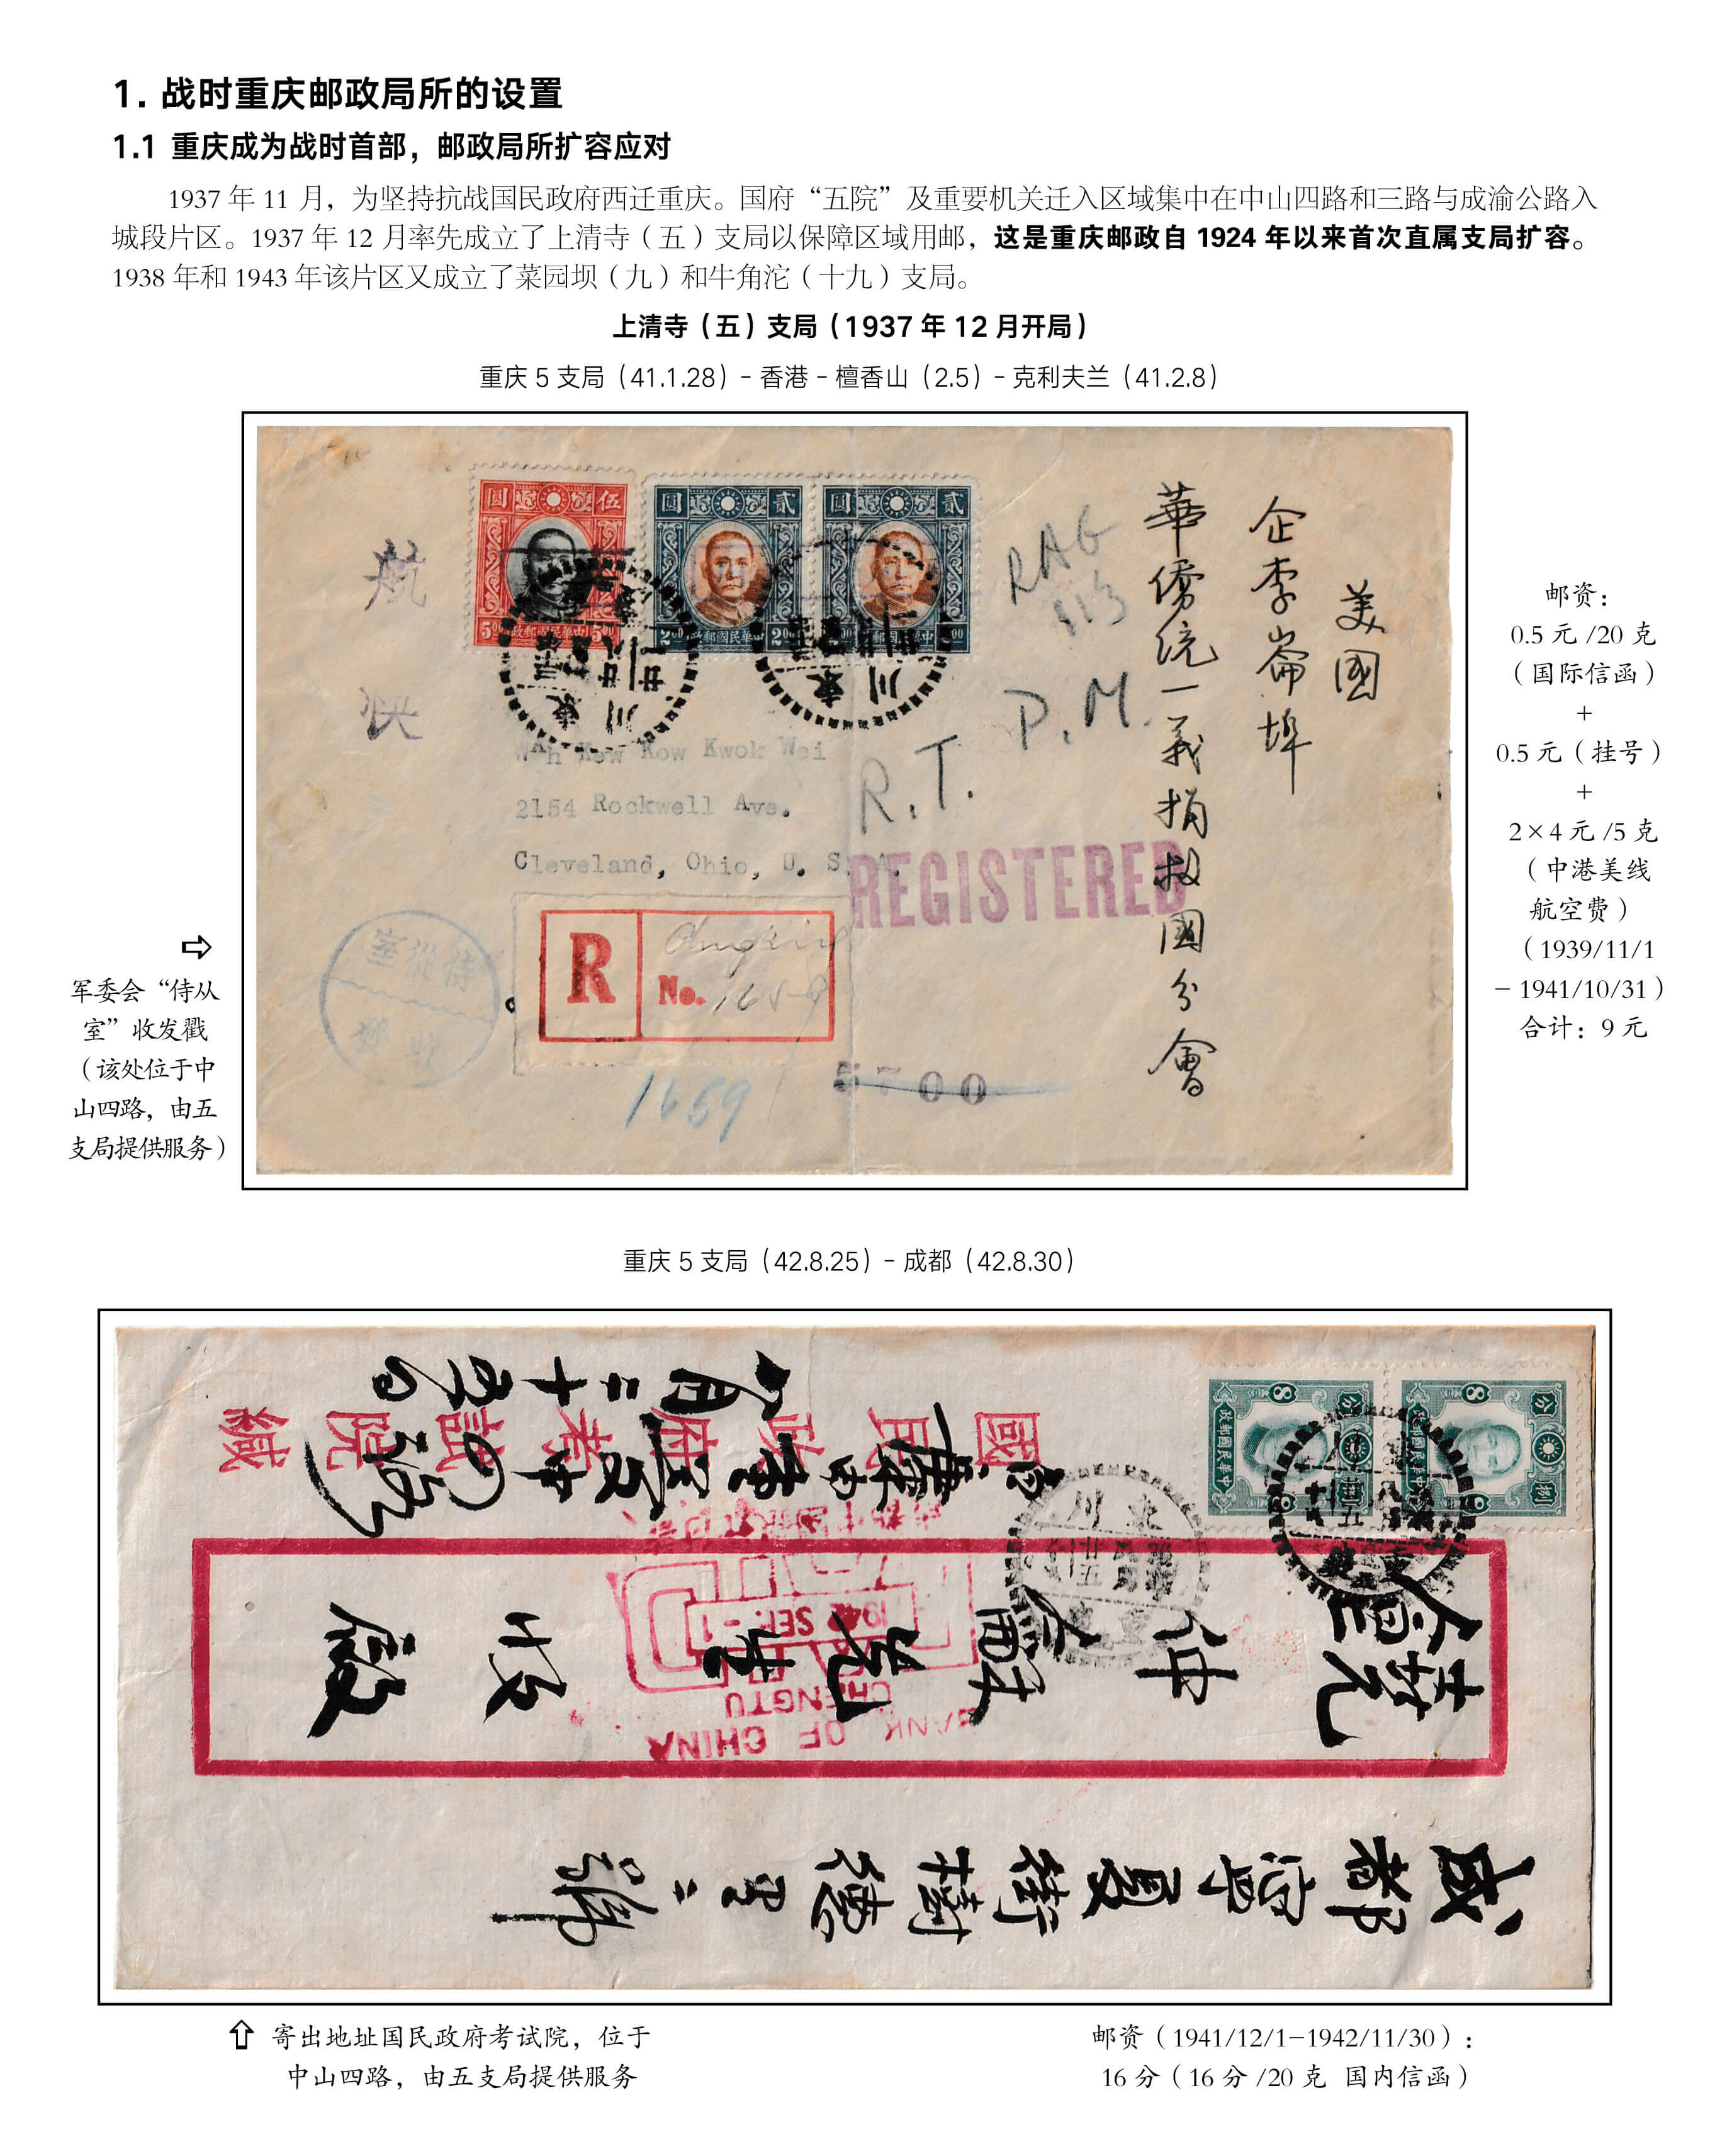 1. 战时重庆邮政局所的设置
1.1 重庆成为战时首部，邮政局所扩容应对
1937 年 11 月，为坚持抗战国民政府西迁重庆。国府“五院”及重要机关迁入区域集中在中山四路和三路与成渝公路入
城段片区。1937 年 12 月率先成立了上清寺（五）支局以保障区域用邮，这是重庆邮政自 1924 年以来首次直属支局扩容。
1938 年和 1943 年该片区又成立了菜园坝（九）和牛角沱（十九）支局。
上清寺（五）支局（1937 年 12 月开局）
重庆 5 支局（41.1.28）- 香港 - 檀香山（2.5）- 克利夫兰（41.2.8）
美國
企李崙埠
華僑统一義捐救國分會
航快
圓 伍
5⁰⁰ 政郵國民華中 5⁰⁰
圓 貳
2⁰⁰ 政郵國民華中 2⁰⁰
圓 貳
川 東
川 東
R.T.
P.M.
Wah Kew Kow Kwok Wei
2154 Rockwell Ave.
Cleveland, Ohio, U. S. A.
REGISTERED
R
No. 1659
室從侍
1659
5700
⇨
军委会“侍从
室”收发戳
（该处位于中
山四路，由五
支局提供服务）
邮资：
0.5 元 /20 克
（国际信函）
+
0.5 元（挂号）
+
2×4 元 /5 克
（中港美线
航空费）
（1939/11/1
- 1941/10/31）
合计：9 元
重庆 5 支局（42.8.25）- 成都（42.8.30）
成都寧夏街樹德里二號
收啟
國民政府考試院緘
八月二十五日
BANK OF CHINA
CHENGTU
1942 SEP -1
8 分
中華民國郵政
捌
⇧ 寄出地址国民政府考试院，位于
中山四路，由五支局提供服务
邮资（1941/12/1-1942/11/30）：
16 分（16 分 /20 克 国内信函）